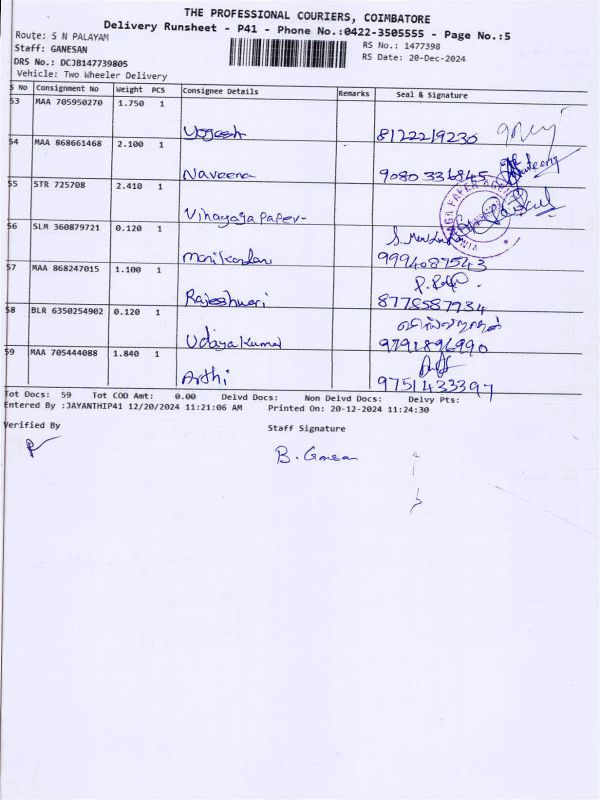 THE PROFESSIONAL COURIERS, COIMBATORE
Delivery Runsheet - P41 - Phone No.:0422-3505555 - Page No.:5
Route: S N PALAYAM
RS No.: 1477398
Staff: GANESAN
RS Date: 20-Dec-2024
DRS No.: DCJB147739805
Vehicle: Two Wheeler Delivery
S No Consignment No Weight PCS Consignee Details Remarks Seal & Signature
53 MAA 705950270 1.750 1
Yogesh 8122219230
54 MAA 868661468 2.100 1
Naveena 9080 336845 Naveena
55 STR 725708 2.410 1
Vinayaga Paper
56 SLM 360879721 0.120 1
Manikandan 9994087543
57 MAA 868247015 1.100 1
Rajeshwari 8778587934
58 BLR 6350254902 0.120 1
Udaya Kumar 9791896990
59 MAA 705444088 1.840 1
Arthi 9751433397
Tot Docs: 59 Tot COD Amt: 0.00 Delvd Docs: Non Delvd Docs: Delvy Pts:
Entered By :JAYANTHIP41 12/20/2024 11:21:06 AM Printed On: 20-12-2024 11:24:30
Verified By Staff Signature
B. Ganesan